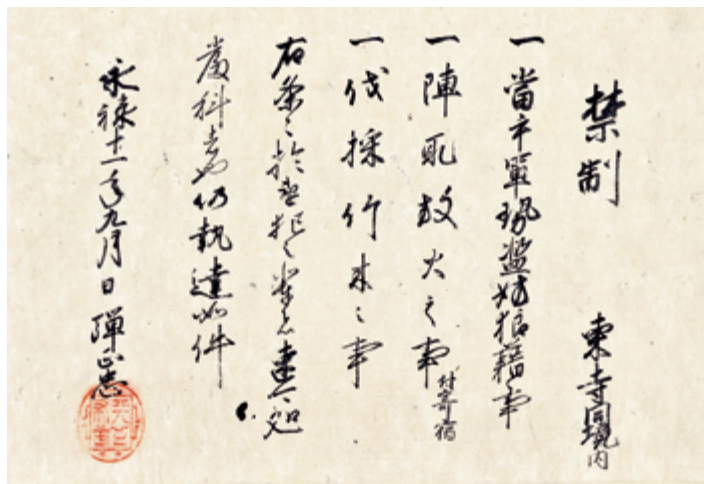 禁制　東寺同境内
一當手軍勢濫妨狼藉事
一陣取放火之事付寄宿
一伐採竹木之事
右条々於違犯之輩者速可処
嚴科者也仍執達如件
永禄十一年九月日 彈正忠